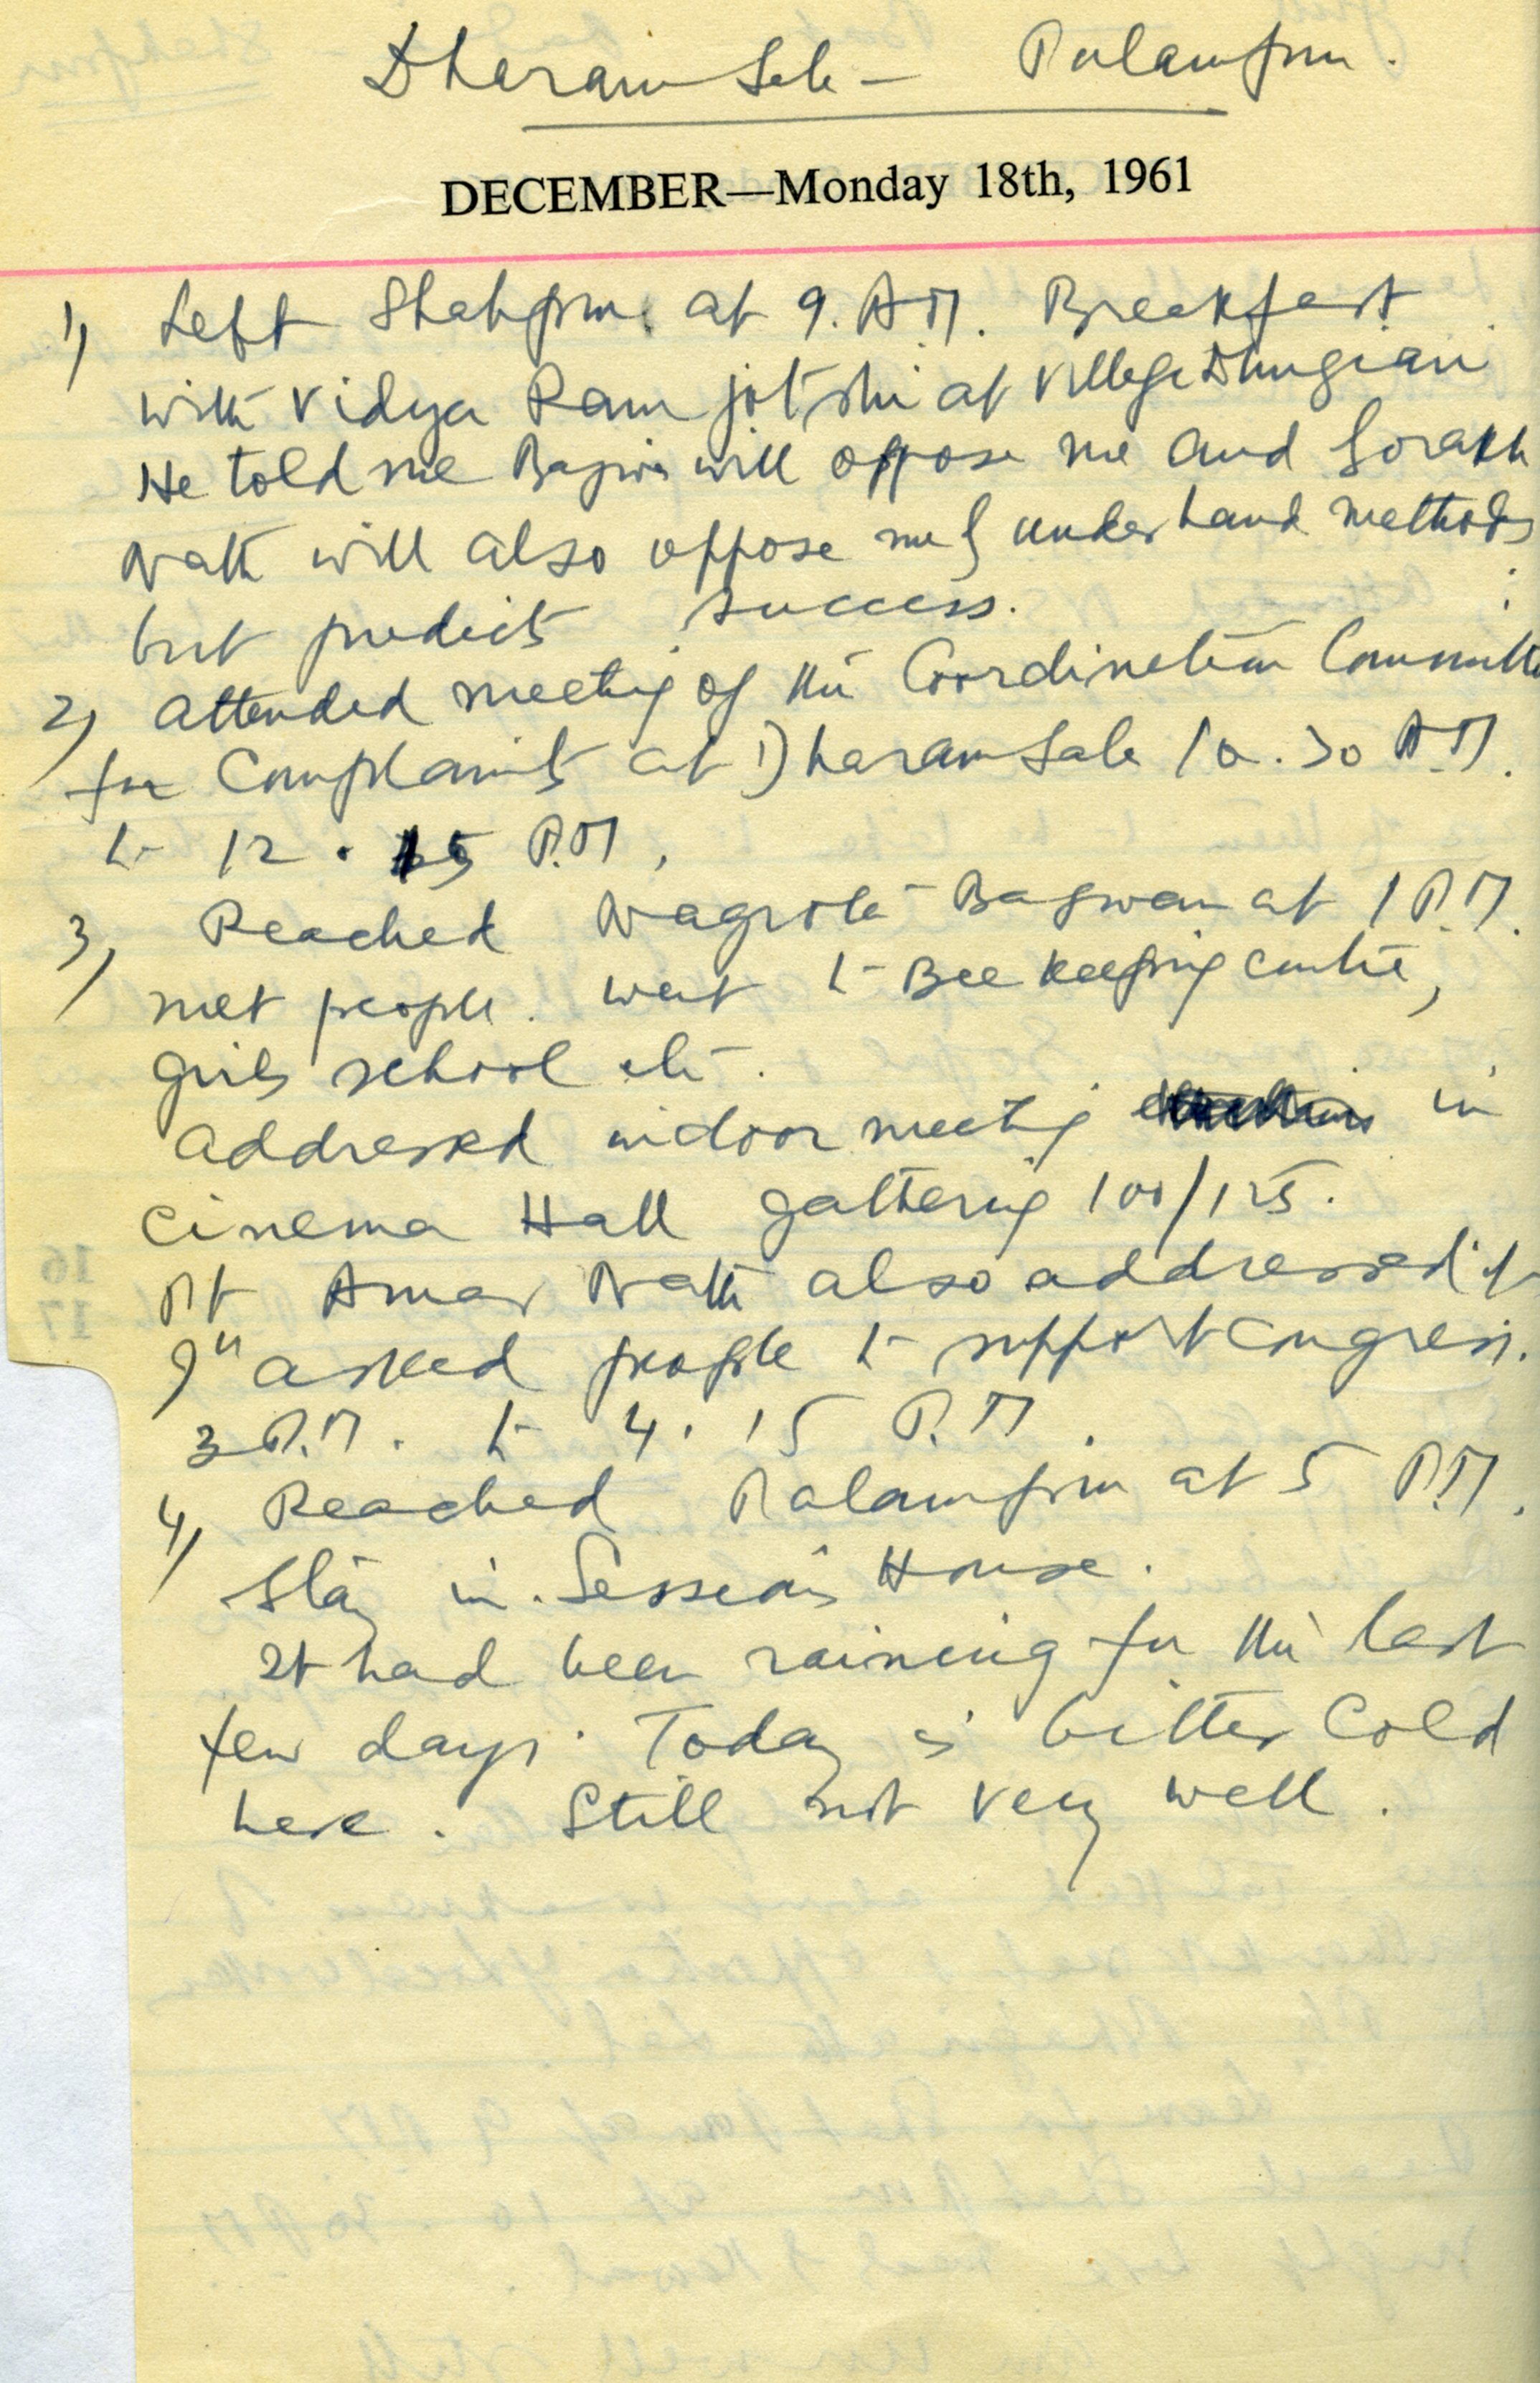 Dharamsala - Palampur.
DECEMBER—Monday 18th, 1961
1) Left Shahpur at 9. AM. Breakfast
with Vidya Ram jotshi at village Dhugiari
He told me will oppose me and Gorakh
Nath will also oppose me & underhand methods
but predicts success.
2) attended meeting of the Coordination Committee
for Complaints at Dharamsala 10.30 A.M.
to 12.15 P.M,
3) Reached Nagrota Bagwan at 1 P.M.
met people. went to Bee keeping centre,
girls school etc.
addressed indoor meeting in
cinema Hall gathering 100/125.
Pt Amar Nath also addressed it
& asked people to support congress.
3 P.M. to 4.15 P.M.
4) Reached Palampur at 5 P.M.
Stay in Sessions House.
It had been raining for the last
few days. Today is bitter cold
here. Still not very well.